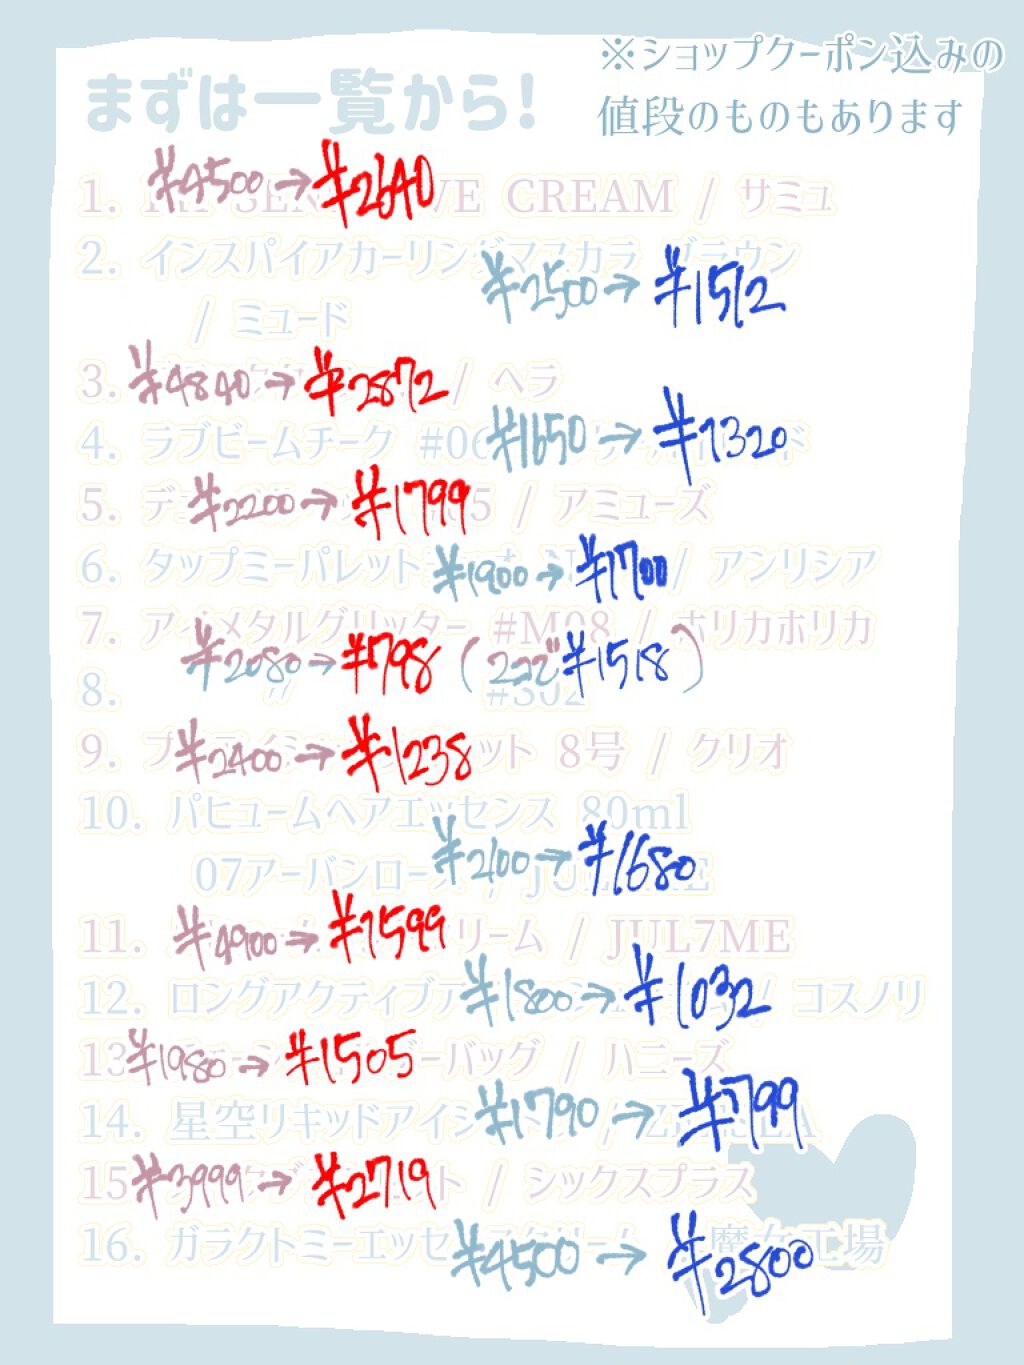 ※ショップクーポン込みの
値段のものもあります
まずは一覧から!
¥4500→¥2640
1. CREAM / サミュ
2. インスパイアカーリングマスカラ ブラウン
¥2500→¥1512
/ ミュード
3. / ヘラ
¥4840→¥2872
4. ラブビームチーク #06
¥1650→¥1320
5. / アミューズ
¥2200→¥1799
6. タップミーパレット / アンリシア
¥1900→¥1700
7. アイメタルグリッター #M08 / ホリカホリカ
¥2080→¥798(2コで¥1518)
8. 〃 #S02
9. 8号 / クリオ
¥2400→¥1238
10. パヒュームヘアエッセンス 80ml
07アーバンローズ / JUL7ME
¥2100→¥1680
11. リーム / JUL7ME
¥4900→¥1599
12. ロングアクティブ / コスノリ
¥1800→¥1032
13 バッグ / ハニーズ
¥1980→¥1505
14. 星空リキッドアイシ /
¥1790→¥799
15 / シックスプラス
¥3999→¥2719
16. ガラクトミーエッセンスクリーム / 魔女工場
¥4500→¥2800